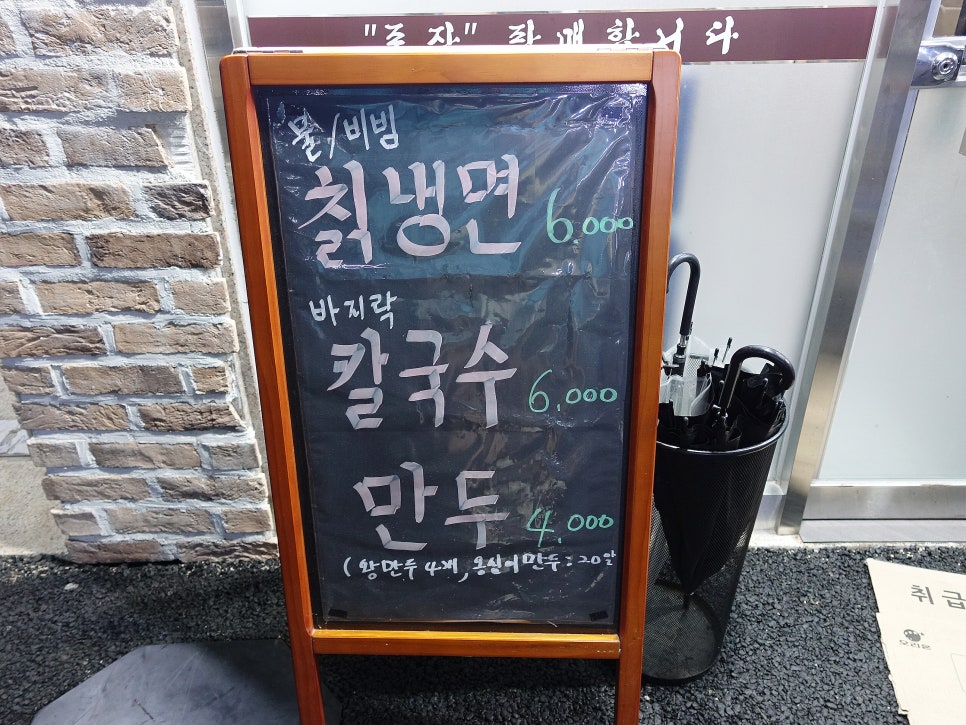 "포장" 판매합니다
물/비빔
칡냉면 6,000
바지락
칼국수 6,000
만두 4,000
(왕만두 4개, 옹심이만두: 20알
취급
오리온